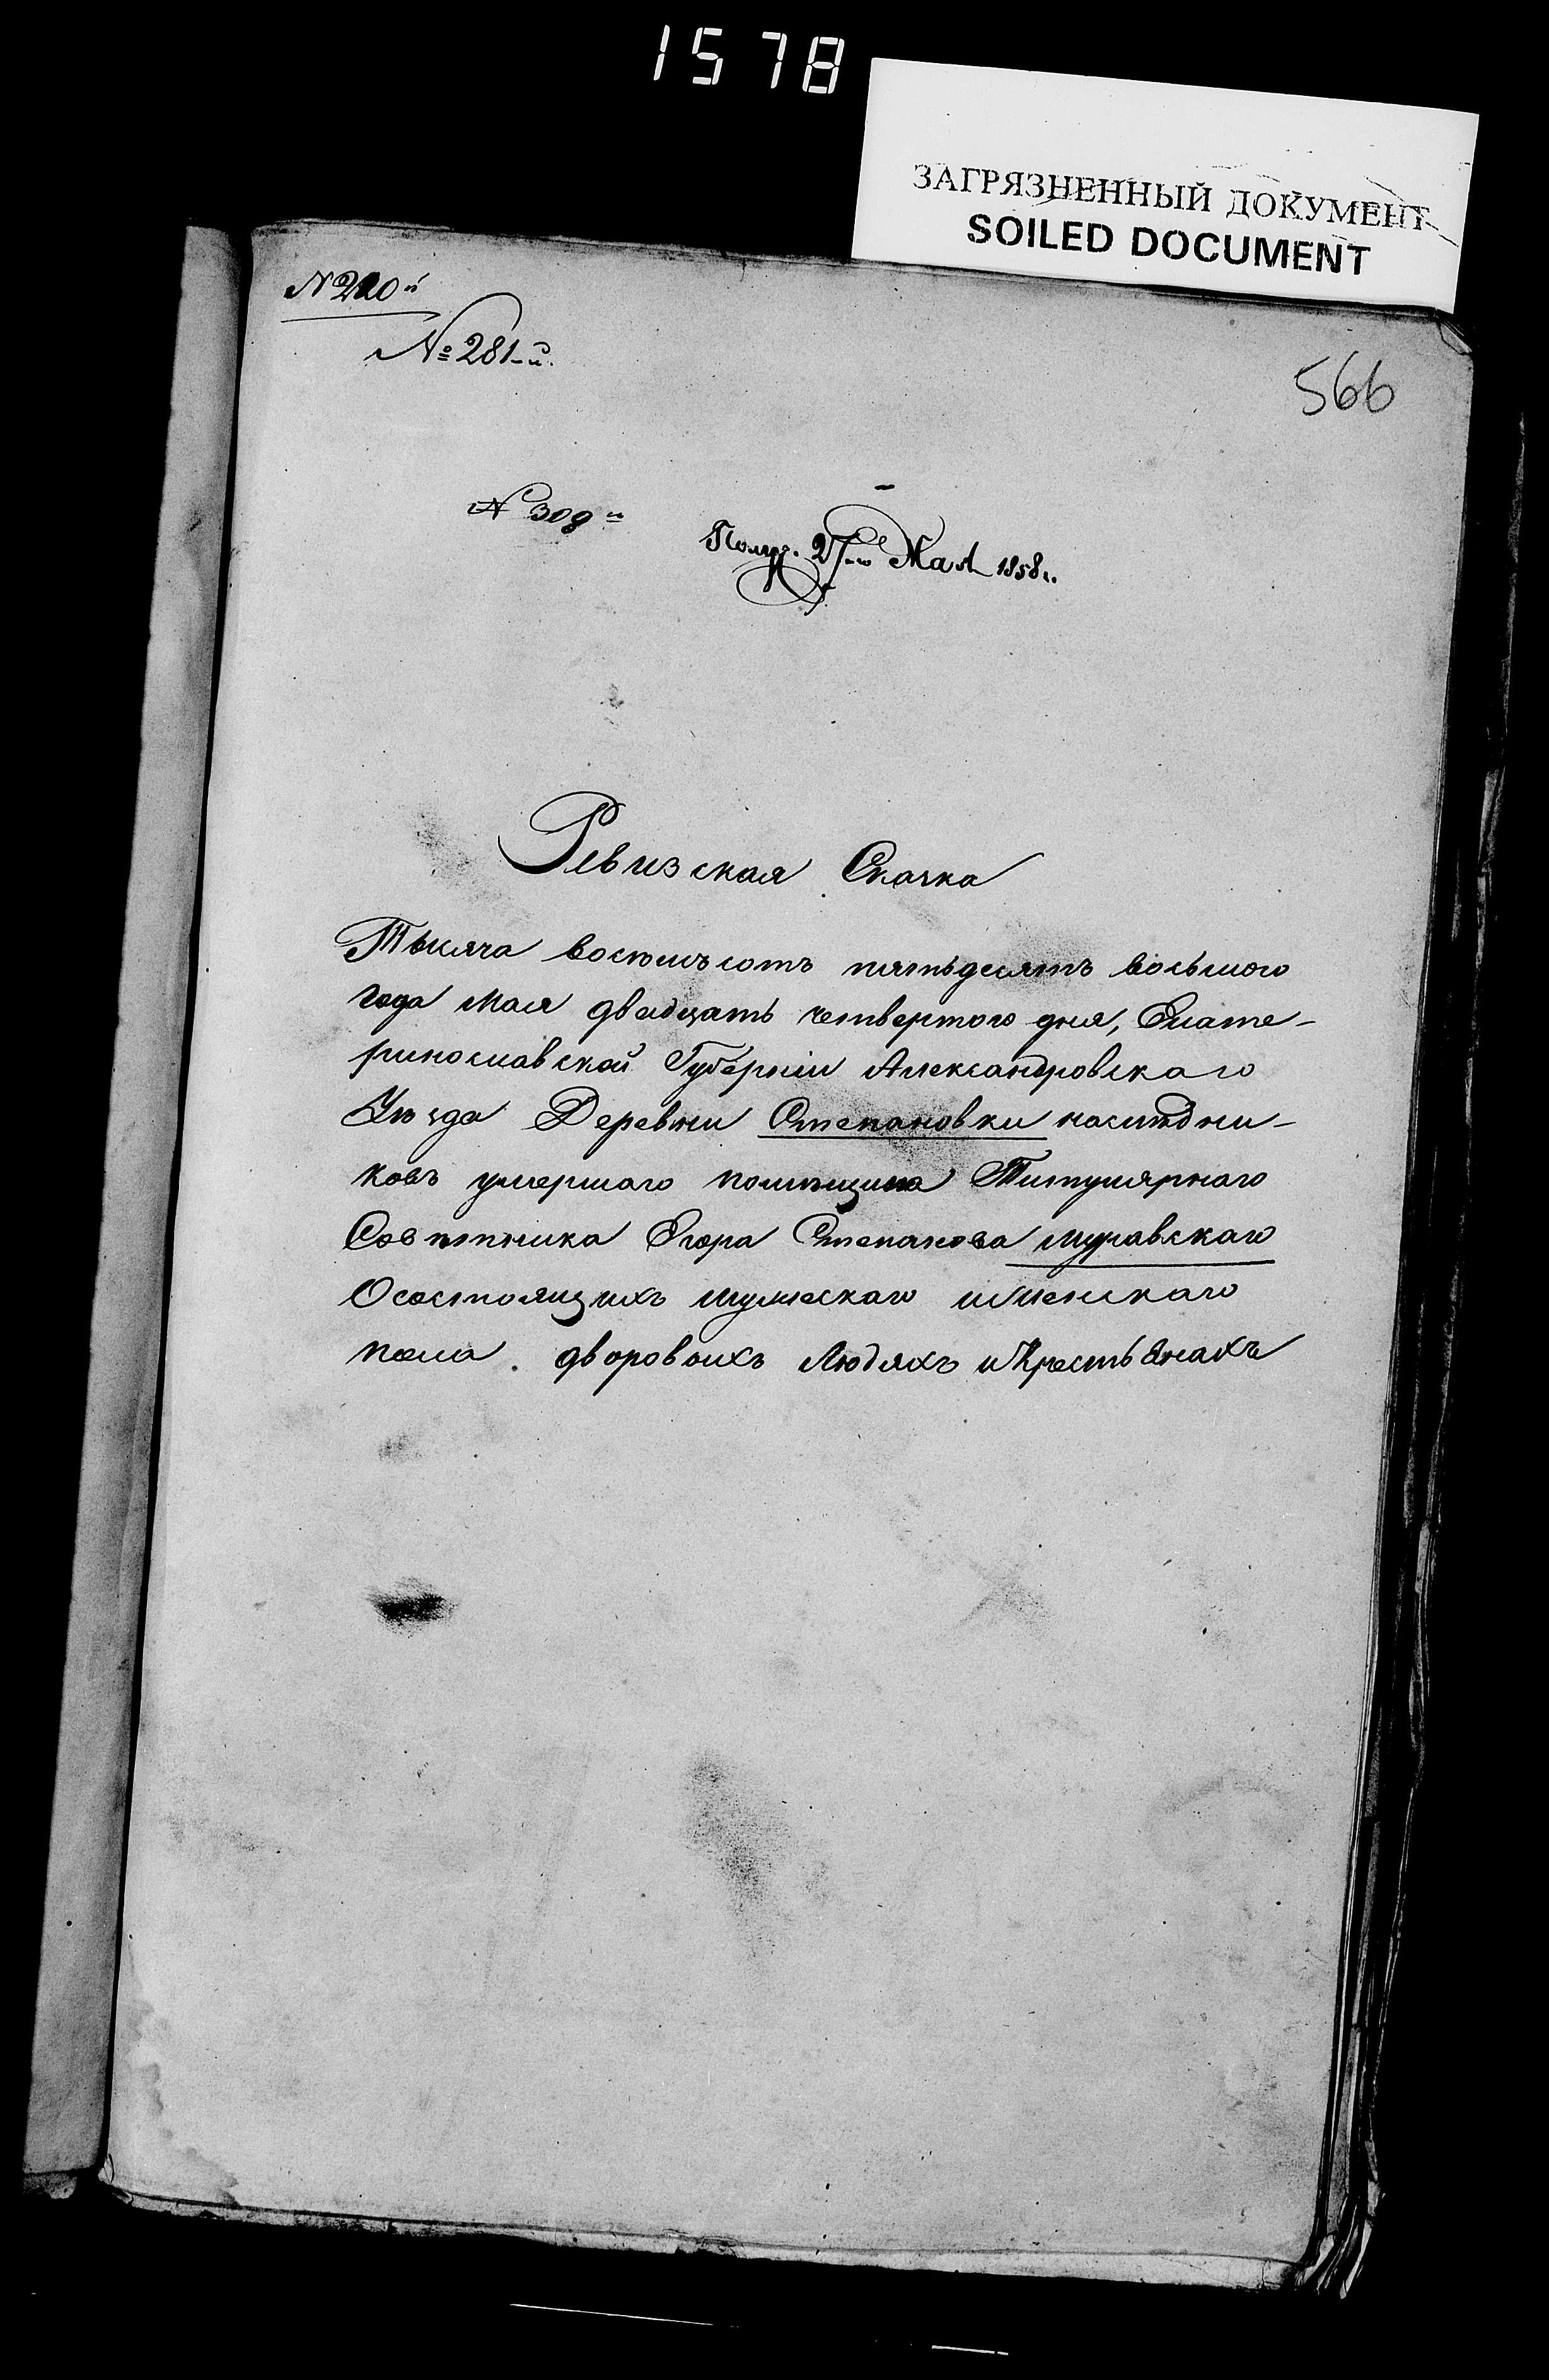 1578
ЗАГРЯЗНЕННЫЙ ДОКУМЕНТ
SOILED DOCUMENT
№ 220й
№ 281-й.
566
№ 309й
Получ. 27-го Мая 1858 г.
Ревизская Скаска
Тысяча восемьсотъ пятьдесятъ восьмого
года Мая двадцать четвертого дня, Екате-
ринославской Губерніи Александровскаго
Уѣзда Деревни Степановки наслѣдни-
ковъ умершаго помѣщика Титулярнаго
Совѣтника Егора Степанова Муравскаго
Осостоящихъ мужескаго иженскаго
пола. дворовыхъ Людяхъ иКрестьянахъ